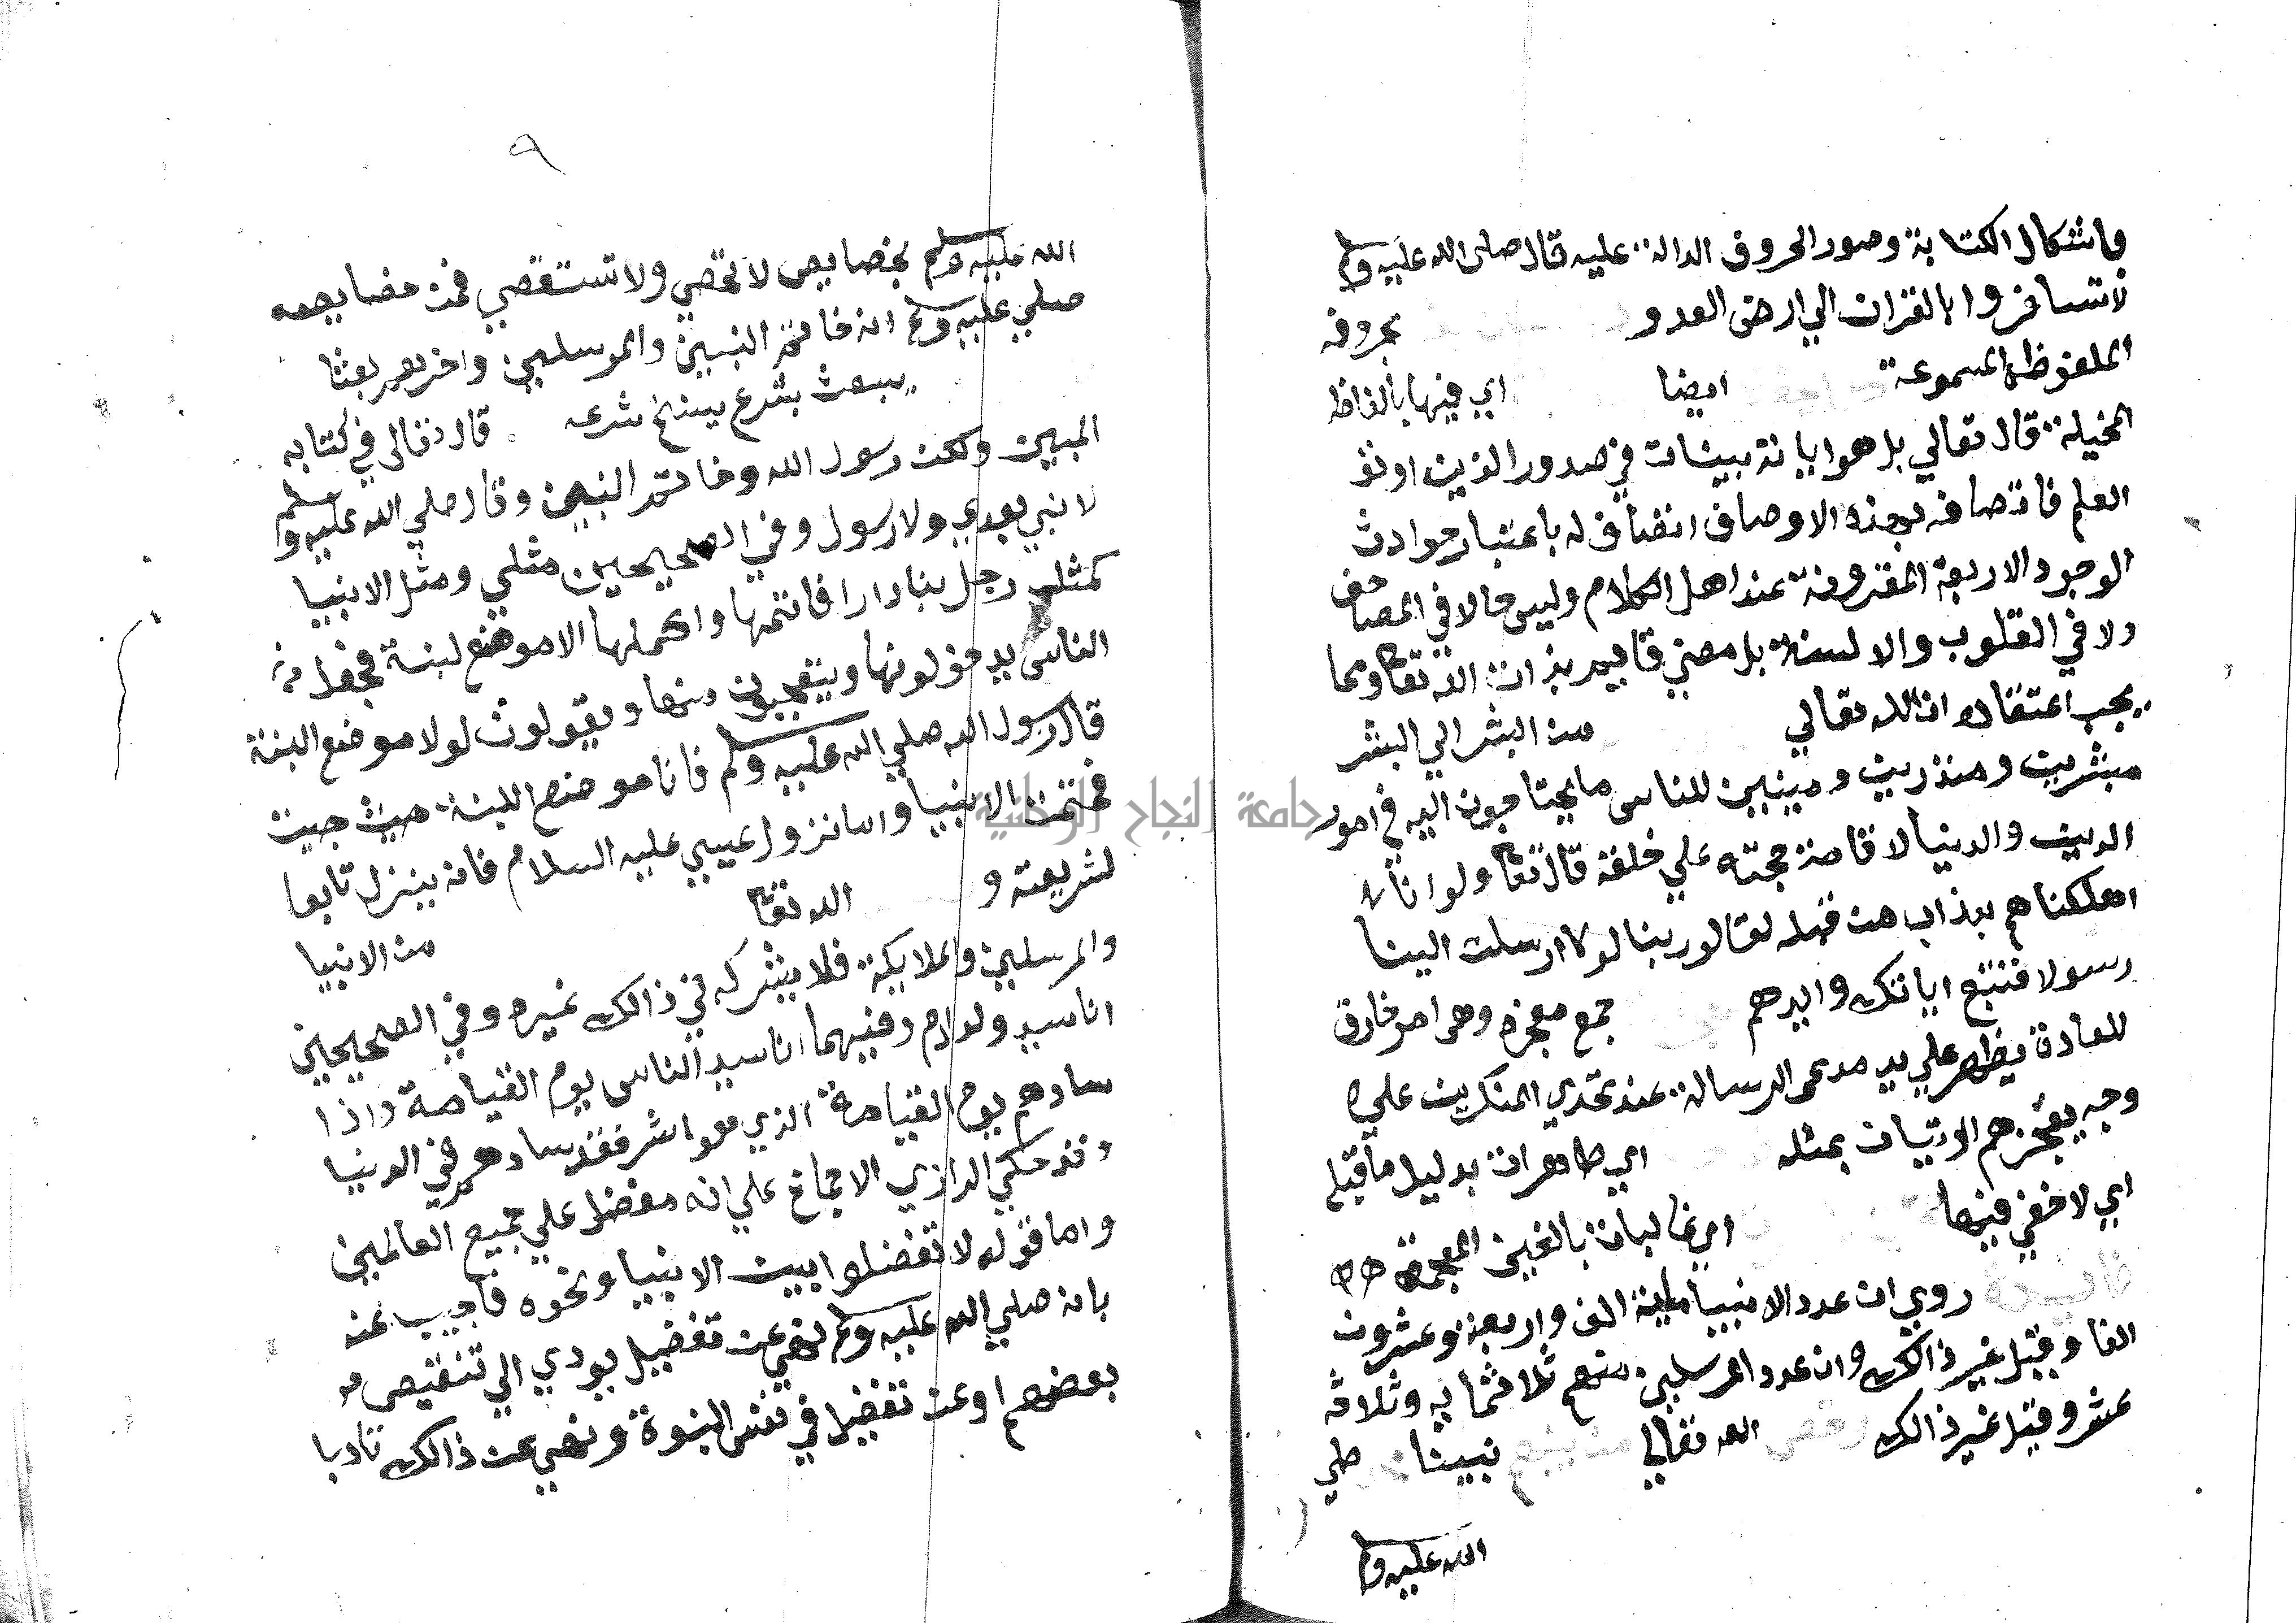 واشكال الكتابة وصور الحروف الدالة عليه قال صلى الله عليه وسلم
لا تسافروا بالقران الي ارض العدو بحروفه
الملفوظة المسموعة ايضا اي فيها بالفاظه
المخيلة قال تعالي بل هو ايات بينات في صدور الذين اوتو
العلم فاتصافه بهذه الاوصاف اتصاف له باعتبار حوادث
الوجود الاربعة المقترونة عند اهل الكلام وليس حالا في المصاحف
ولا في القلوب والالسنة بل معني قايم بذات الله تعا ومما
يجب اعتقاده ان الله تعالي من البشر الي البشر
مبشرين ومنذرين ومبينين للناس ما يحتاجون اليه في امور
الدين والدنيا لاقامة حجته علي خلقه قال تعا ولو انا
اهلكناهم بعذاب من قبله لقالو ربنا لولا ارسلت الينا
رسولا فنتبع اياتك وايدهم جمع معجزه وهي امر خارق
للعادة يظهر علي يد مدعى الرسالة عند تحدي المنكرين علي
وجه يعجزهم الاتيان بمثله اي ظاهرات بدليل ما قبله
اي لا خفي فيها اي غالبات بالغين المعجمة
روي ان عدد الانبيا ماية الف واربعة وعشرون
الفا وقيل غير ذالك وان عدد المرسلين منهم ثلاثماية وثلاثة
عشر وقيل غير ذالك الله تعالي نبينا صلي
الله عليه وسلم
٩
الله عليه وسلم بخصايص لا تحصي ولا تستقصي فمن خصايصه
صلي عليه وسلم انه خاتم النبيين والمرسلين واخرهم بعثا
يبعث بشرع ينسخ شرعه قال تعالى في كتابه
المبين ولكن رسول الله وخاتم النبين وقال صلي الله عليه وسلم
لا نبي بعدي ولا رسول وفي الصحيحين مثلي ومثل الانبيا
كمثل رجل بنا دارا فاتمها واكملها الا موضع لبنة فجعل
الناس يدخلونها ويتعجبون منها ويقولون لولا موضع البنة
قال رسول الله صلي الله عليه وسلم فانا موضع اللبنة حيث جيت
فختمت الانبيا واما نزول عيسي عليه السلام فانه ينزل تابعا
لشريعته و الله تعا من الانبيا
والمرسلين والملايكة فلا يشركه في ذالك غيره وفي الصحيحين
انا سيد ولد ادم وفيهما انا سيد الناس يوم القيامة واذا
سادهم يوم القيامة الذي هو اشر فقد سادهم في الدنيا
وقد حكي الرازي الاجماع علي انه مفضل علي جميع العالمين
واما قوله لا تفضلوا بين الانبيا ونحوه فاجيب عنه
بانه صلي الله عليه وسلم نهي عن تفضيل يودي الي تنقيص
بعضهم او عن تفضيل في نفس النبوة ونهي عن ذالك تادبا
جامعة النجاح الوطنية